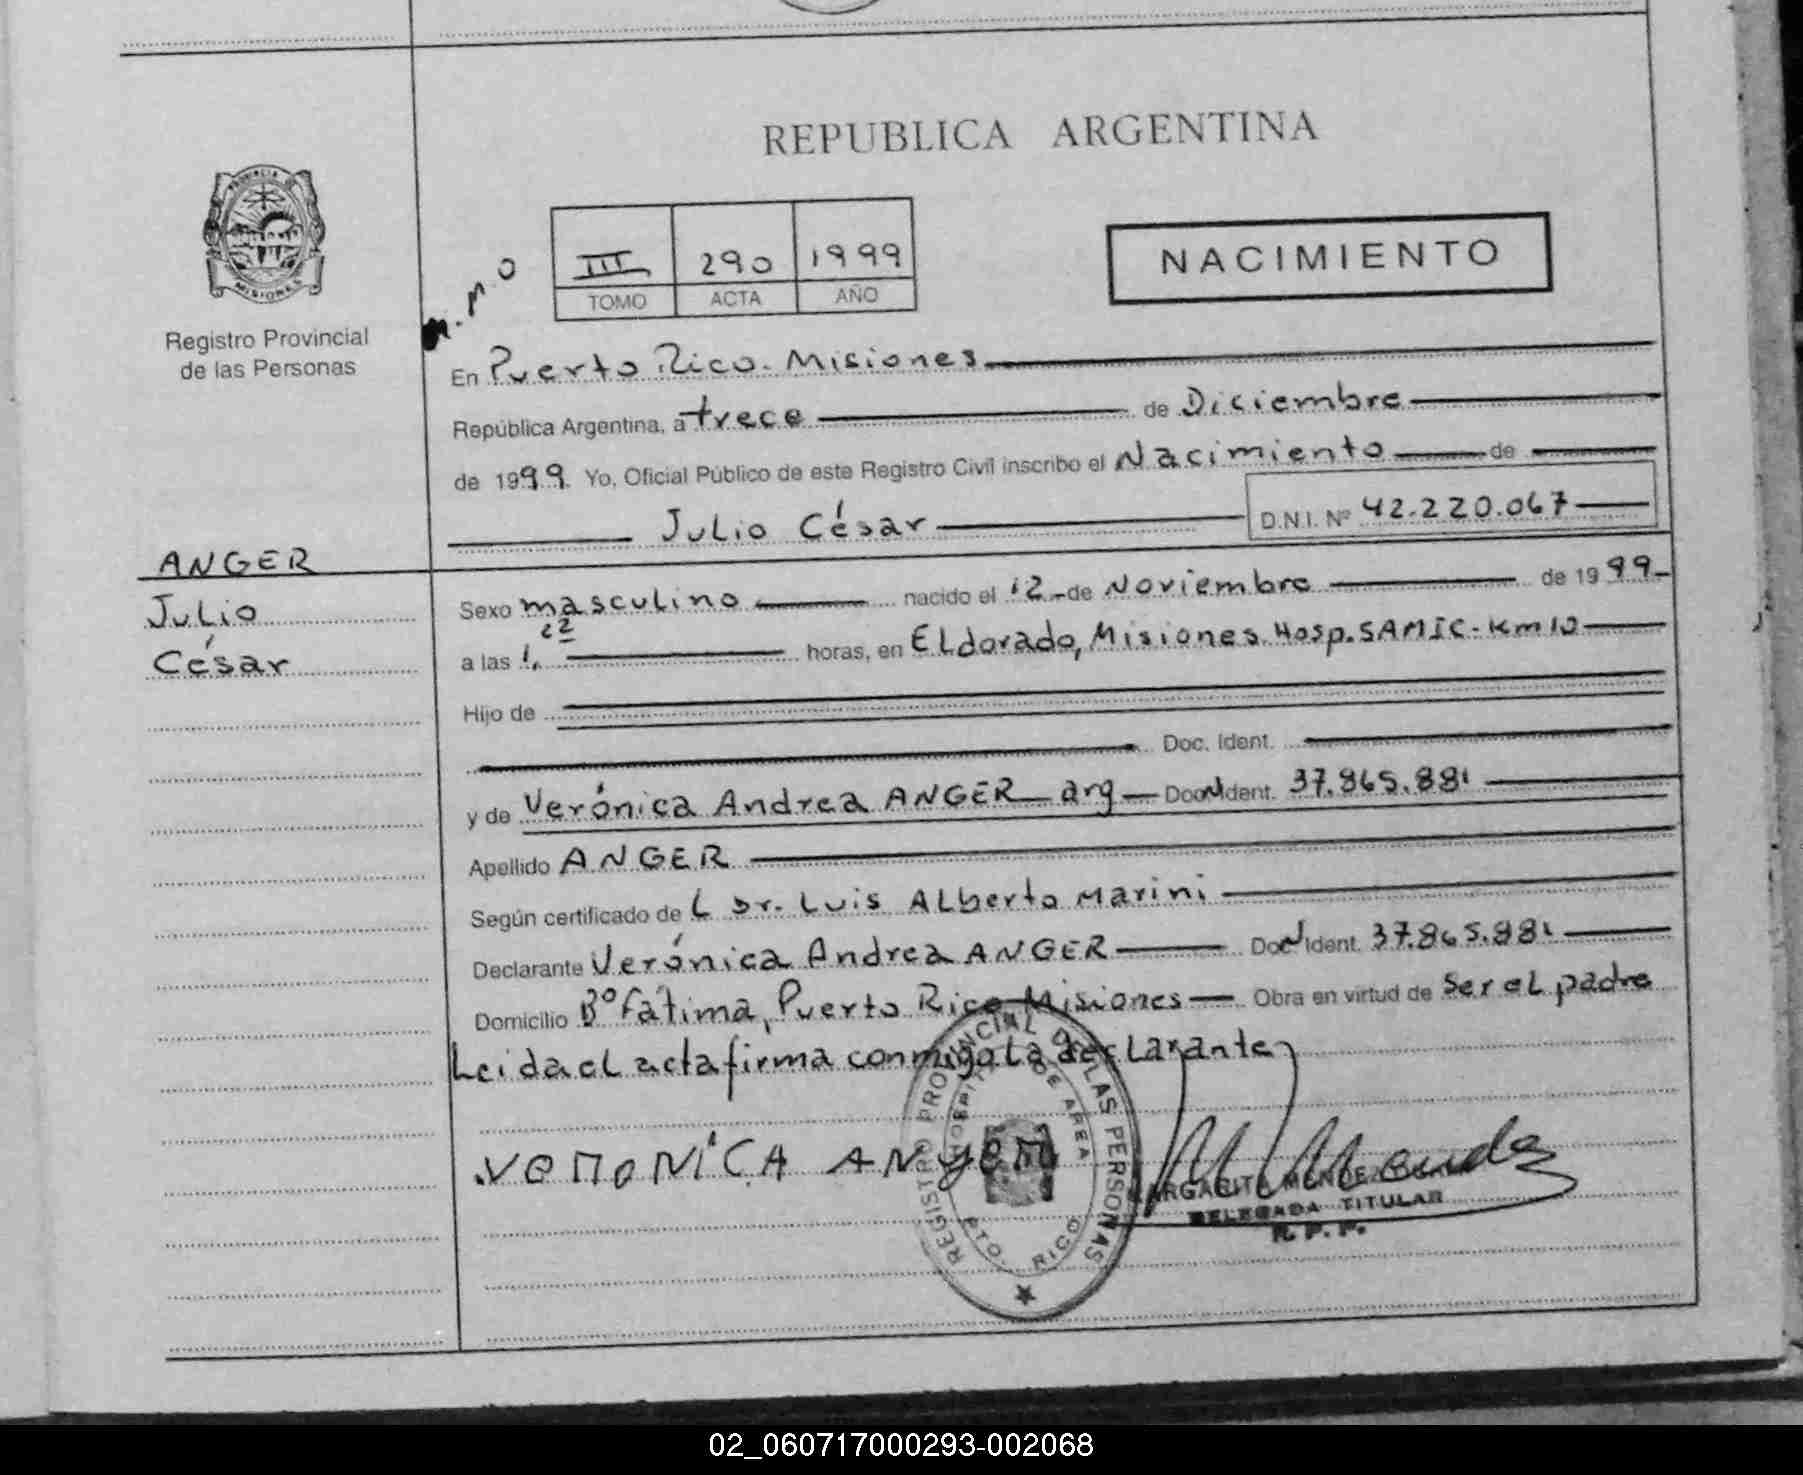 REPUBLICA ARGENTINA
PROVINCIA DE
MISIONES
Registro Provincial
de las Personas
M.M.O
III 290 1999
TOMO ACTA AÑO
NACIMIENTO
En Puerto Rico. Misiones
República Argentina, a trece de Diciembre
de 1999. Yo, Oficial Público de este Registro Civil inscribo el Nacimiento de
Julio César D.N.I. Nº 42.220.067
ANGER
Julio
César
Sexo masculino nacido el 12 de Noviembre de 1999
a las 1,22 horas, en Eldorado, Misiones Hosp. SAMIC - Km 10
Hijo de
Doc. Ident.
y de Verónica Andrea ANGER arg Doc. Ident. 37.865.881
Apellido ANGER
Según certificado de L Dr. Luis Alberto Marini
Declarante Verónica Andrea ANGER Doc. Ident. 37.865.881
Domicilio Bº Fátima, Puerto Rico Misiones Obra en virtud de ser el padre
Leida el acta firma conmigo la declarante
VERONICA ANgER
REGISTRO PROVINCIAL DE LAS PERSONAS
DE AREA
PTO. RICO
MARGARITA MENDE
DELEGADA TITULAR
R.P.P.
02_060717000293-002068